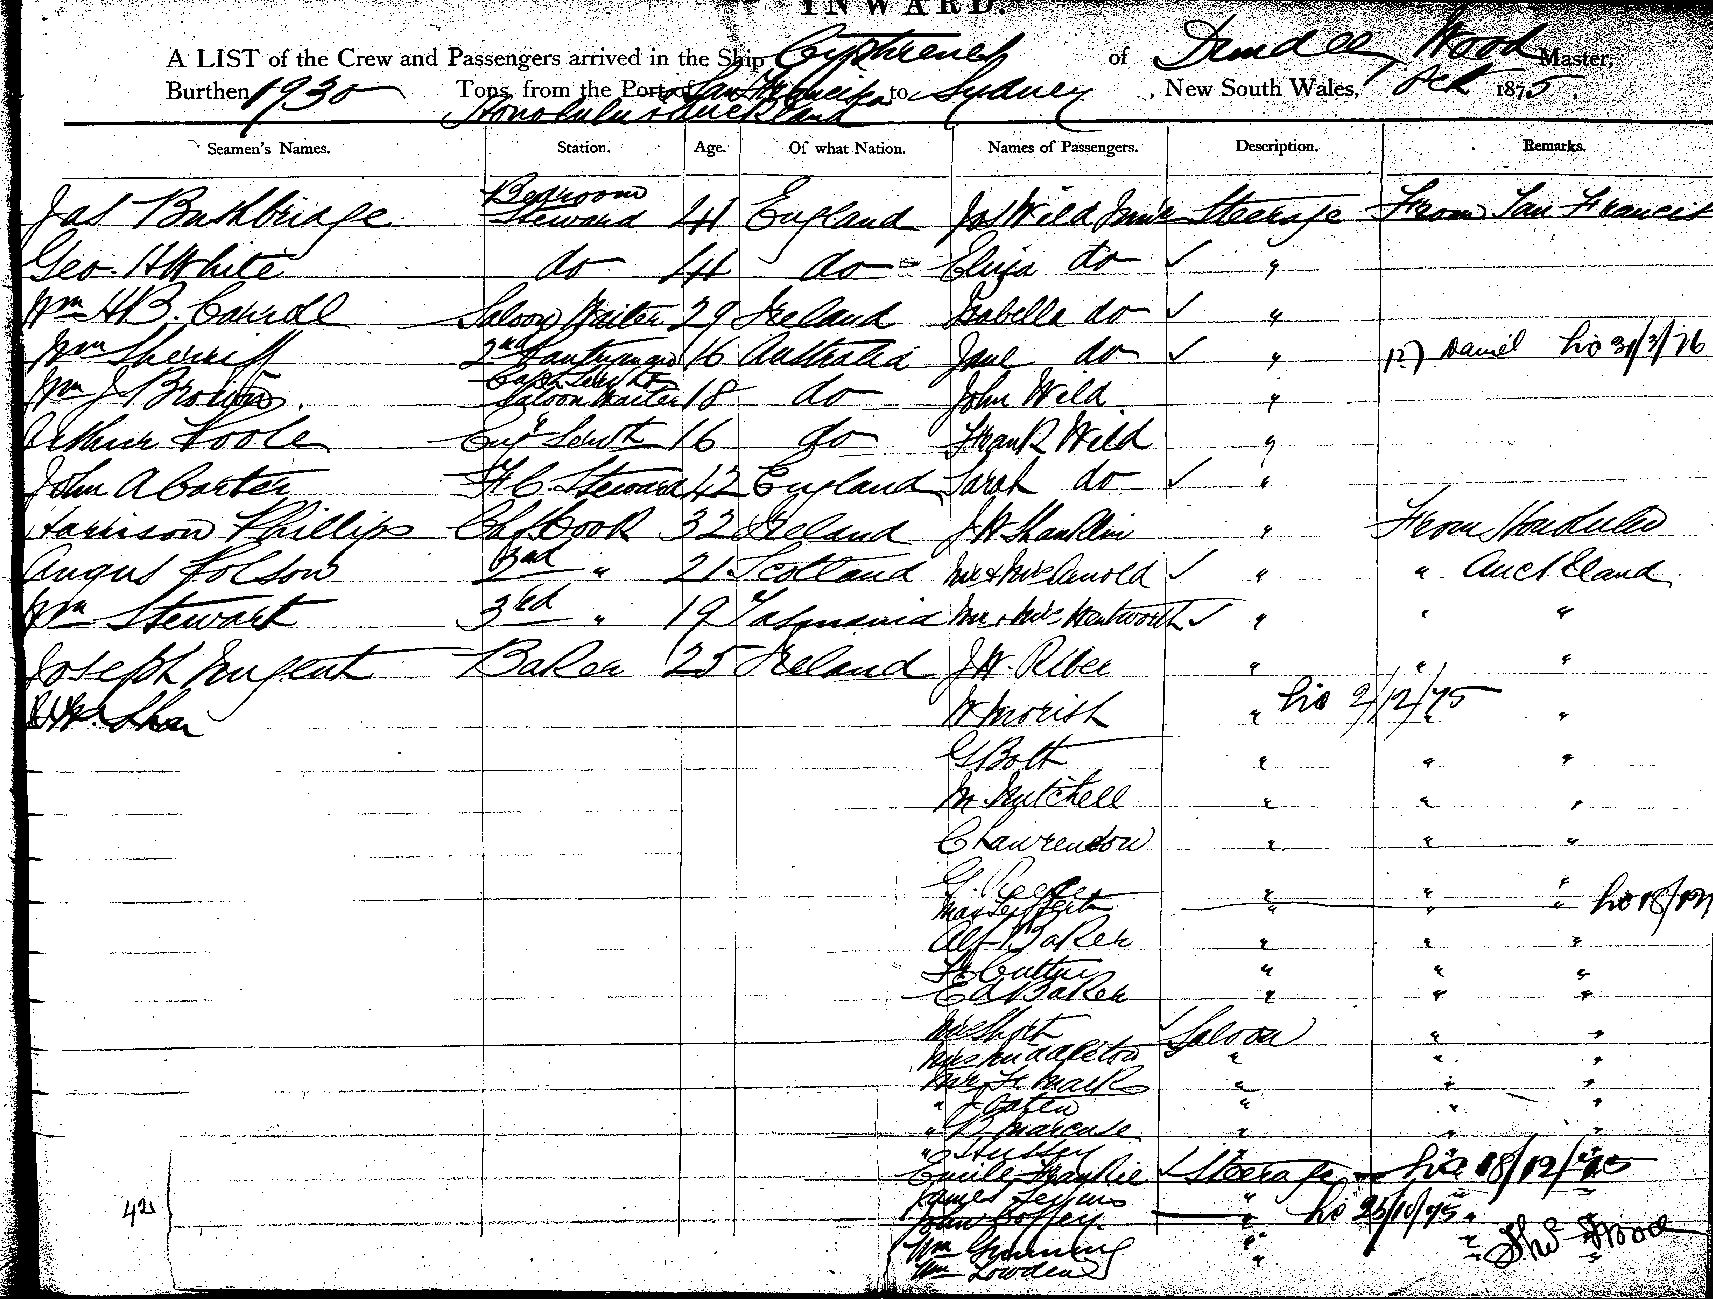 INWARD.
A LIST of the Crew and Passengers arrived in the Ship Cyphrenes of Dundee, Wood Master,
Burthen 1930 Tons, from the Port of San Francisco to Sydney, New South Wales, Oct 1875.
Honolulu & Auckland
Seamen's Names. Station. Age. Of what Nation. Names of Passengers. Description. Remarks.
Jas Bushbridge Bedroom Steward 41 England Jas Wild Steerage From San Francis
Geo. H White do 44 do Eliza do ✓ "
Wm H B. Carroll Saloon Waiter 29 Ireland Isabella do ✓ "
Wm Sherriff 2nd Pantryman 16 Australia Jane do ✓ " Daniel 31/3/76
Wm J Brown Saloon Waiter 18 do John Wild "
Arthur Poole Engrs Servt 16 do Frank Wild "
John A Carter F.C. Steward 42 England Sarah do ✓ "
Harrison Phillips Chf Cook 32 Ireland J W Shanklin " From Honolulu
Angus Folson 2nd " 21 Scotland Mr & Mrs Arnold ✓ " " Auckland
Wm Stewart 3rd " 19 Tasmania Mr & Mrs Wentworth ✓ " " "
Joseph Nugent Baker 25 Ireland J.W. Riber " " "
W Morish " 2/12/75 " "
G Bolt " " "
M. Mitchell " " "
C Lawrendow " " "
G. " " "
" " "
Alf Baker " " "
" " "
Ed Baker " " "
Mr Short ✓ Saloon " "
Mrs Middleton " " "
Mr F. Mark " " "
" J " " "
" B Marcuse " " "
" Hussey
Emile Frankie ✓ Steerage 18/12/75
James "
John Coffey " 25/10/75 "
Wm Gunning "
Wm Lowden "
42
Thos Wood